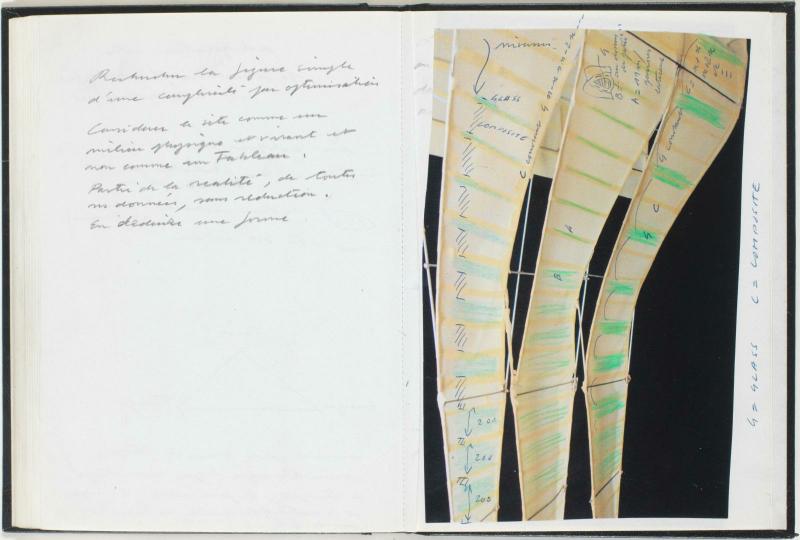 Rechercher la figure simple
d'une complexité par optimisation
Considérer le site comme un
milieu physique et vivant et
non comme un Tableau.
Partir de la réalité, de toutes
ses données, sans réduction.
En déduire une forme
GLASS
COMPOSITE
C constant
A
B
G constant
G
C
200
200
200
G = GLASS C = COMPOSITE